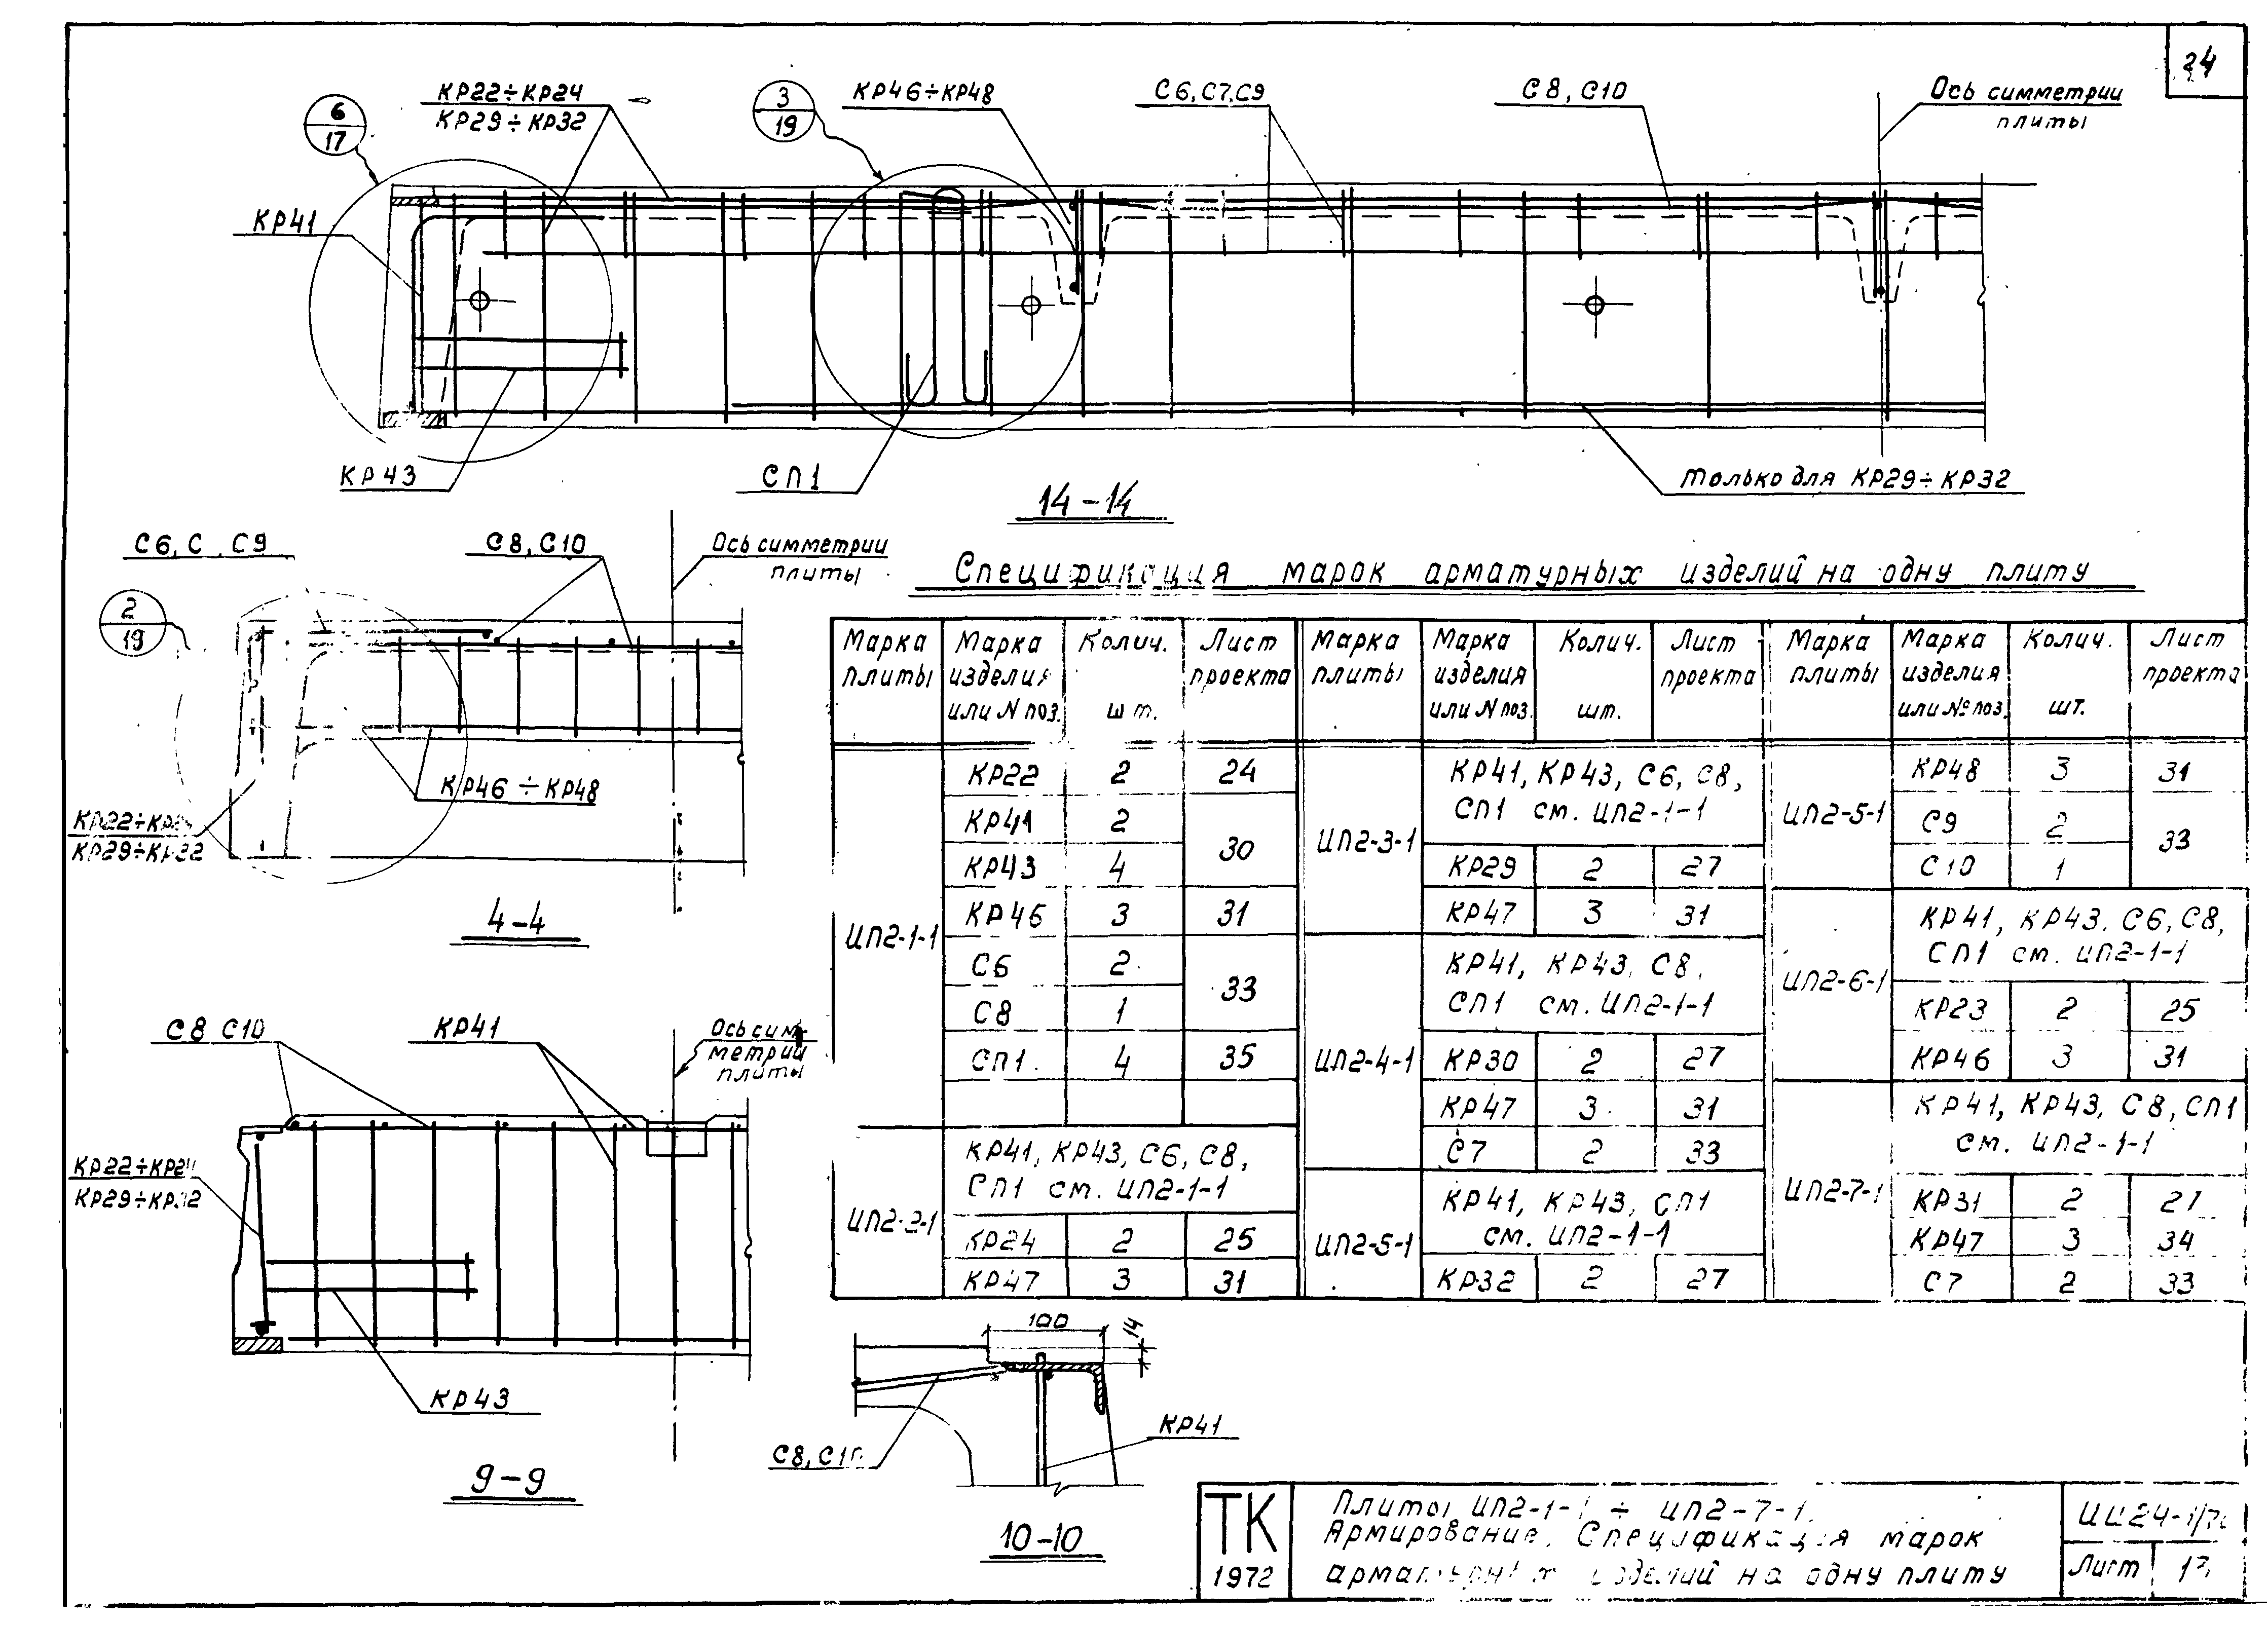 24
6
17
КР22÷КР24
КР29÷КР32
3
19
КР46÷КР48
С6,С7,С9
С8,С10
Ось симметрии
плиты
КР41
КР43
СП1
только для КР29÷КР32
14-14
С6, С , С9
С8,С10
Ось симметрии
плиты
2
19
КР46÷КР48
КР22÷КР24
КР29÷КР32
4-4
С8 С10
КР41
Ось сим-
метрии
плиты
КР22÷КР24
КР29÷КР32
КР43
9-9
Спецификация марок арматурных изделий на одну плиту
Марка плиты | Марка изделия или N поз. | Колич. шт. | Лист проекта | Марка плиты | Марка изделия или N поз. | Колич. шт. | Лист проекта | Марка плиты | Марка изделия или № поз. | Колич. шт. | Лист проекта
ИП2-1-1
КР22 2 24
КР41 2
30
КР43 4
КР46 3 31
С6 2
33
С8 1
СП1 4 35
ИП2-2-1
КР41, КР43, С6, С8,
СП1 см. ИП2-1-1
КР24 2 25
КР47 3 31
ИП2-3-1
КР41, КР43, С6, С8,
СП1 см. ИП2-1-1
КР29 2 27
КР47 3 31
ИП2-4-1
КР41, КР43, С8,
СП1 см. ИП2-1-1
КР30 2 27
КР47 3 31
С7 2 33
ИП2-5-1
КР41, КР43, СП1
см. ИП2-1-1
КР32 2 27
ИП2-5-1
КР48 3 31
С9 2
33
С10 1
ИП2-6-1
КР41, КР43, С6, С8,
СП1 см. ИП2-1-1
КР23 2 25
КР46 3 31
ИП2-7-1
КР41, КР43, С8, СП1
см. ИП2-1-1
КР31 2 27
КР47 3 34
С7 2 33
100
14
С8, С10
КР41
10-10
ТК
1972
Плиты ИП2-1-1 ÷ ИП2-7-1.
Армирование. Спецификация марок
арматурных изделий на одну плиту
ИИ24-1/70
Лист 13